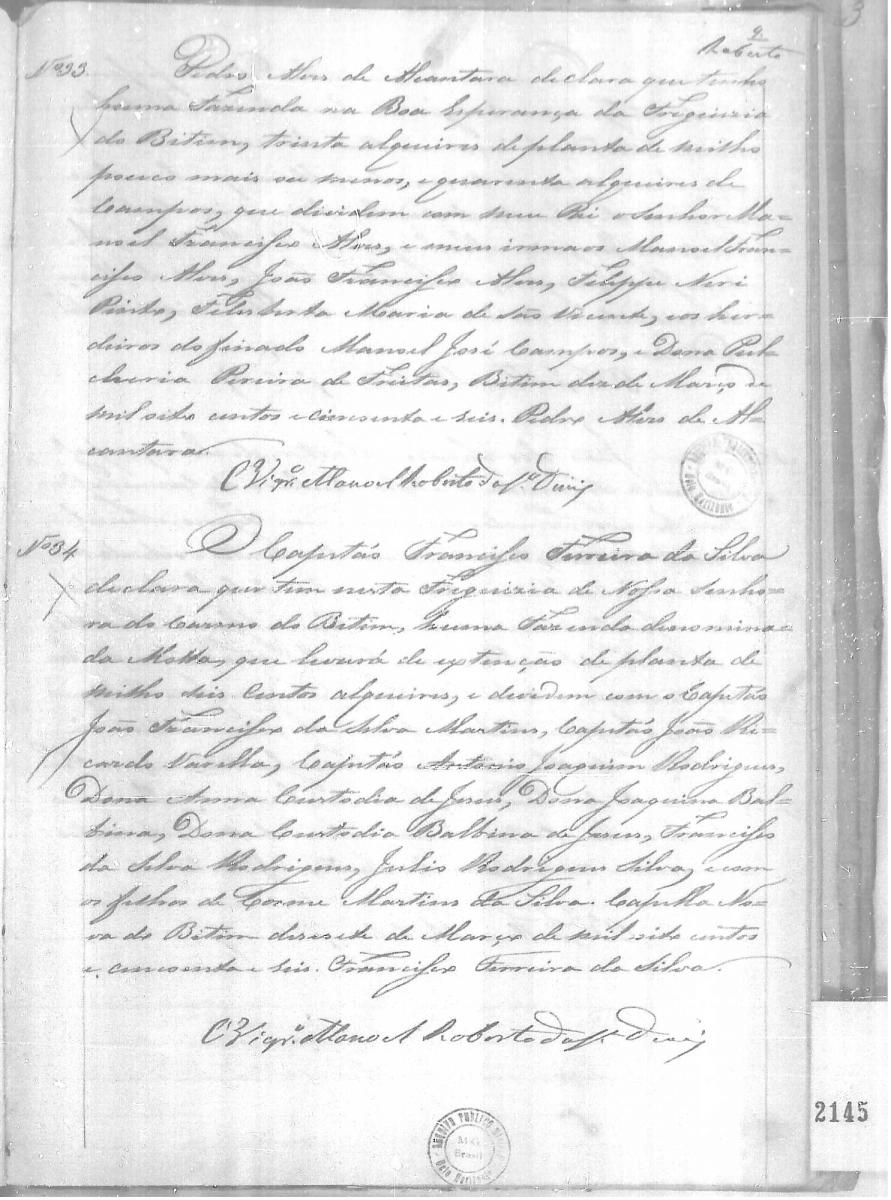 9.
Roberto
Nº33. Pedro Alvis de Alcantara declara que tenho
huma Fazenda na Boa Esperança da Freguizia
do Bitim, trinta alqueires de planta de milho
pouco mais ou menos, e quarenta alqueires de
Campos, que dividem com meu Pai o Senhor Ma=
noel Francisco Alves, e meus irmaos Manoel Fran=
cisco Alves, João Francisco Alves, Filippe Neri
Pinto, Felisberta Maria de São Vicente, e os her=
deiros do finado Manoel José Campos, e Dona Pul=
cheria Pereira de Freitas, Bitim dez de Março de
mil oito centos e cincoenta e seis. Pedro Alves de Al=
cantara.
O Vigrº. Manoel Roberto da Sª Diniz
Nº34 O Capitão Francisco Ferreira da Silva
declara que tem nesta Freguizia de Nossa Senho=
ra do Carmo do Bitim, huma Fazenda denomina=
da Motta, que levará de extenção de planta de
milho seis centos alqueires, e dividem com o Capitão
João Francisco da Silva Martins, Capitão João Ri=
cardo Varella, Capitão Antonio Joaquim Rodrigues,
Dona Anna Custodia de Jesus, Dona Joaquina Bal=
bina, Dona Custodia Balbina de Jesus, Francisco
da Silva Rodrigues, Julio Rodrigues Silva, e com
os filhos de Cosme Martins da Silva. Capella No=
va do Bitim desesete de Março de mil oito centos
e cincoenta e seis. Francisco Ferreira da Silva.
O Vigrº. Manoel Roberto da Sª Diniz
2145
ARQUIVO PUBLICO
M.G.
Brasil
Belo Horizonte